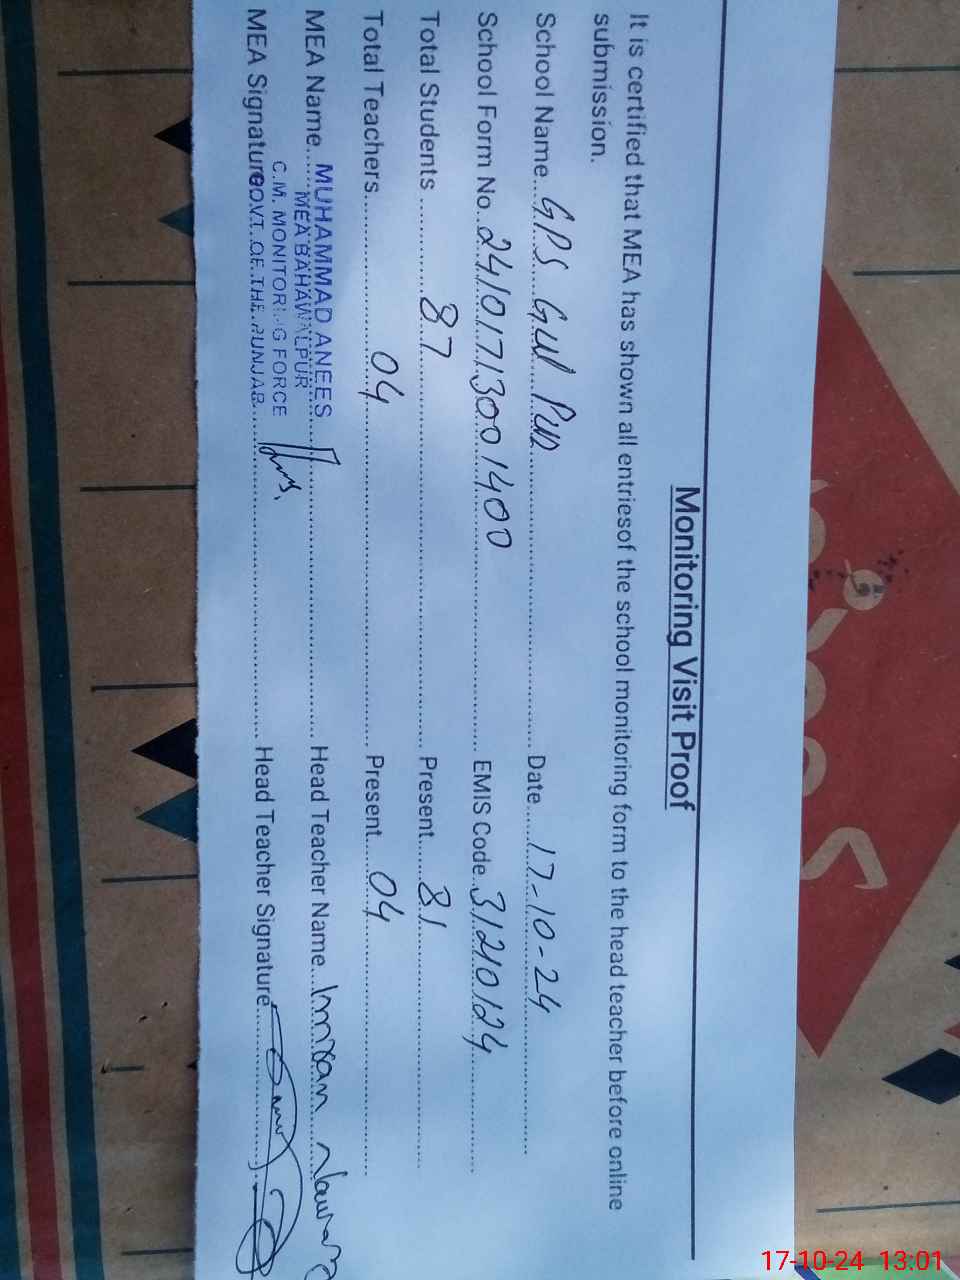 Monitoring Visit Proof
It is certified that MEA has shown all entriesof the school monitoring form to the head teacher before online
submission.
School Name...GPS Gul Pur.......... Date.......17-10-24..........
School Form No..24101713001400.......... EMIS Code..31210124..........
Total Students ..........87.......... Present.....81..........
Total Teachers..........04.......... Present.....04..........
MEA Name.....MUHAMMAD ANEES.......... Head Teacher Name...Imran
MEA BAHAWALPUR
C.M. MONITORING FORCE
MEA Signature GOVT. OF THE PUNJAB.......... Head Teacher Signature..........
17-10-24 13:01